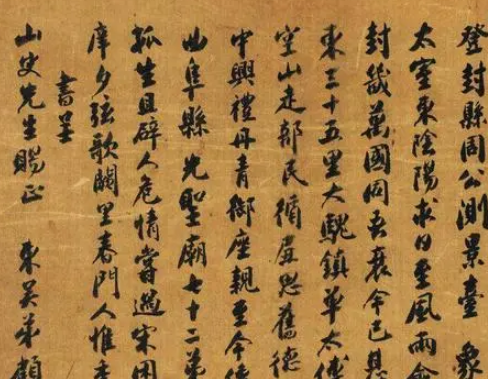 登封縣周公測景臺 象
太室東陰陽求日至風雨會
封畿萬國同吾衰今已甚
東三十五里大騩鎮卓太傅
空山走部民循良思舊德
中興禮丹青御座親至今傳
曲阜縣先聖廟七十二弟
孤生且辟人危情嘗過宋困
庠夕弦歌闕里春門人惟季
書呈
山史先生賜正 東吳弟顧